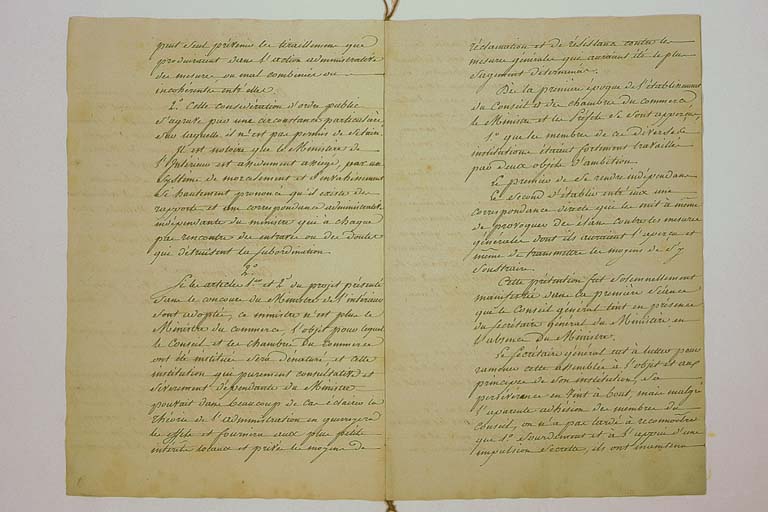 peut seul prévenir les tiraillemens que
produiraient dans l'action administrative
des mesures ou mal combinées ou
incohérentes entr'elles.
2.° Cette considération d'ordre public
s'agrave par une circonstance particulière,
sur laquelle il n'est pas permis de se taire.
Il est notoire que le Ministère de
l'Intérieur est assidument assiégé par un
système de morcelement et d'envahissement
si hautement prononcé qu'il existe des
rapports et une correspondance administrative
indépendante du ministre qui à chaque
pas rencontre des entraves ou des doutes
que détruisent la subordination.
2.°
Si les articles 1.er et 2.e du projet présenté
dans le concours du Ministre de l'intérieur
sont adoptés, ce ministre n'est plus le
Ministre du commerce l'objet pour lequel
le Conseil et les chambres du Commerce
ont été institués sera dénaturé et cette
institution qui purement consultative et
sévèrement dépendante du Ministre
pouvait dans beaucoup de cas éclairer la
théorie de l'administration en
les effets et fournira aux plus petits
intérêts locaux et privés les moyens de
réclamation et de résistance contre les
mesures générales qui auraient été le plus
sagement déterminées.
Dès la première époque de l'établissement
du Conseil et des chambres du commerce,
le Ministre et les Préfets se sont apperçus,
1.° que les membres de ces diverses
institutions étaient fortement travaillés
par deux objets d'ambition.
Le premier de se rendre indépendans
le second d'établir entr'eux une
correspondance directe qui les mit à même
de provoquer des éclats contre les mesures
générales dont ils auraient l'aperçu et
même de transmettre les moyens de s'y
soustraire.
Cette prétention fut solennellement
manifestée dans la première séance
que le Conseil général tint en présence
du Secrétaire général du Ministère en
l'absence du Ministre.
Le Secrétaire général eut à lutter pour
ramener cette assemblée à l'objet et aux
principes de son institution, Sa
persévérance en vint à bout, mais malgré
l'apparente adhésion des membres du
Conseil, on n'a pas tardé à reconnoître
que 1.° sourdement et à l'appui d'une
impulsion secrète, ils ont